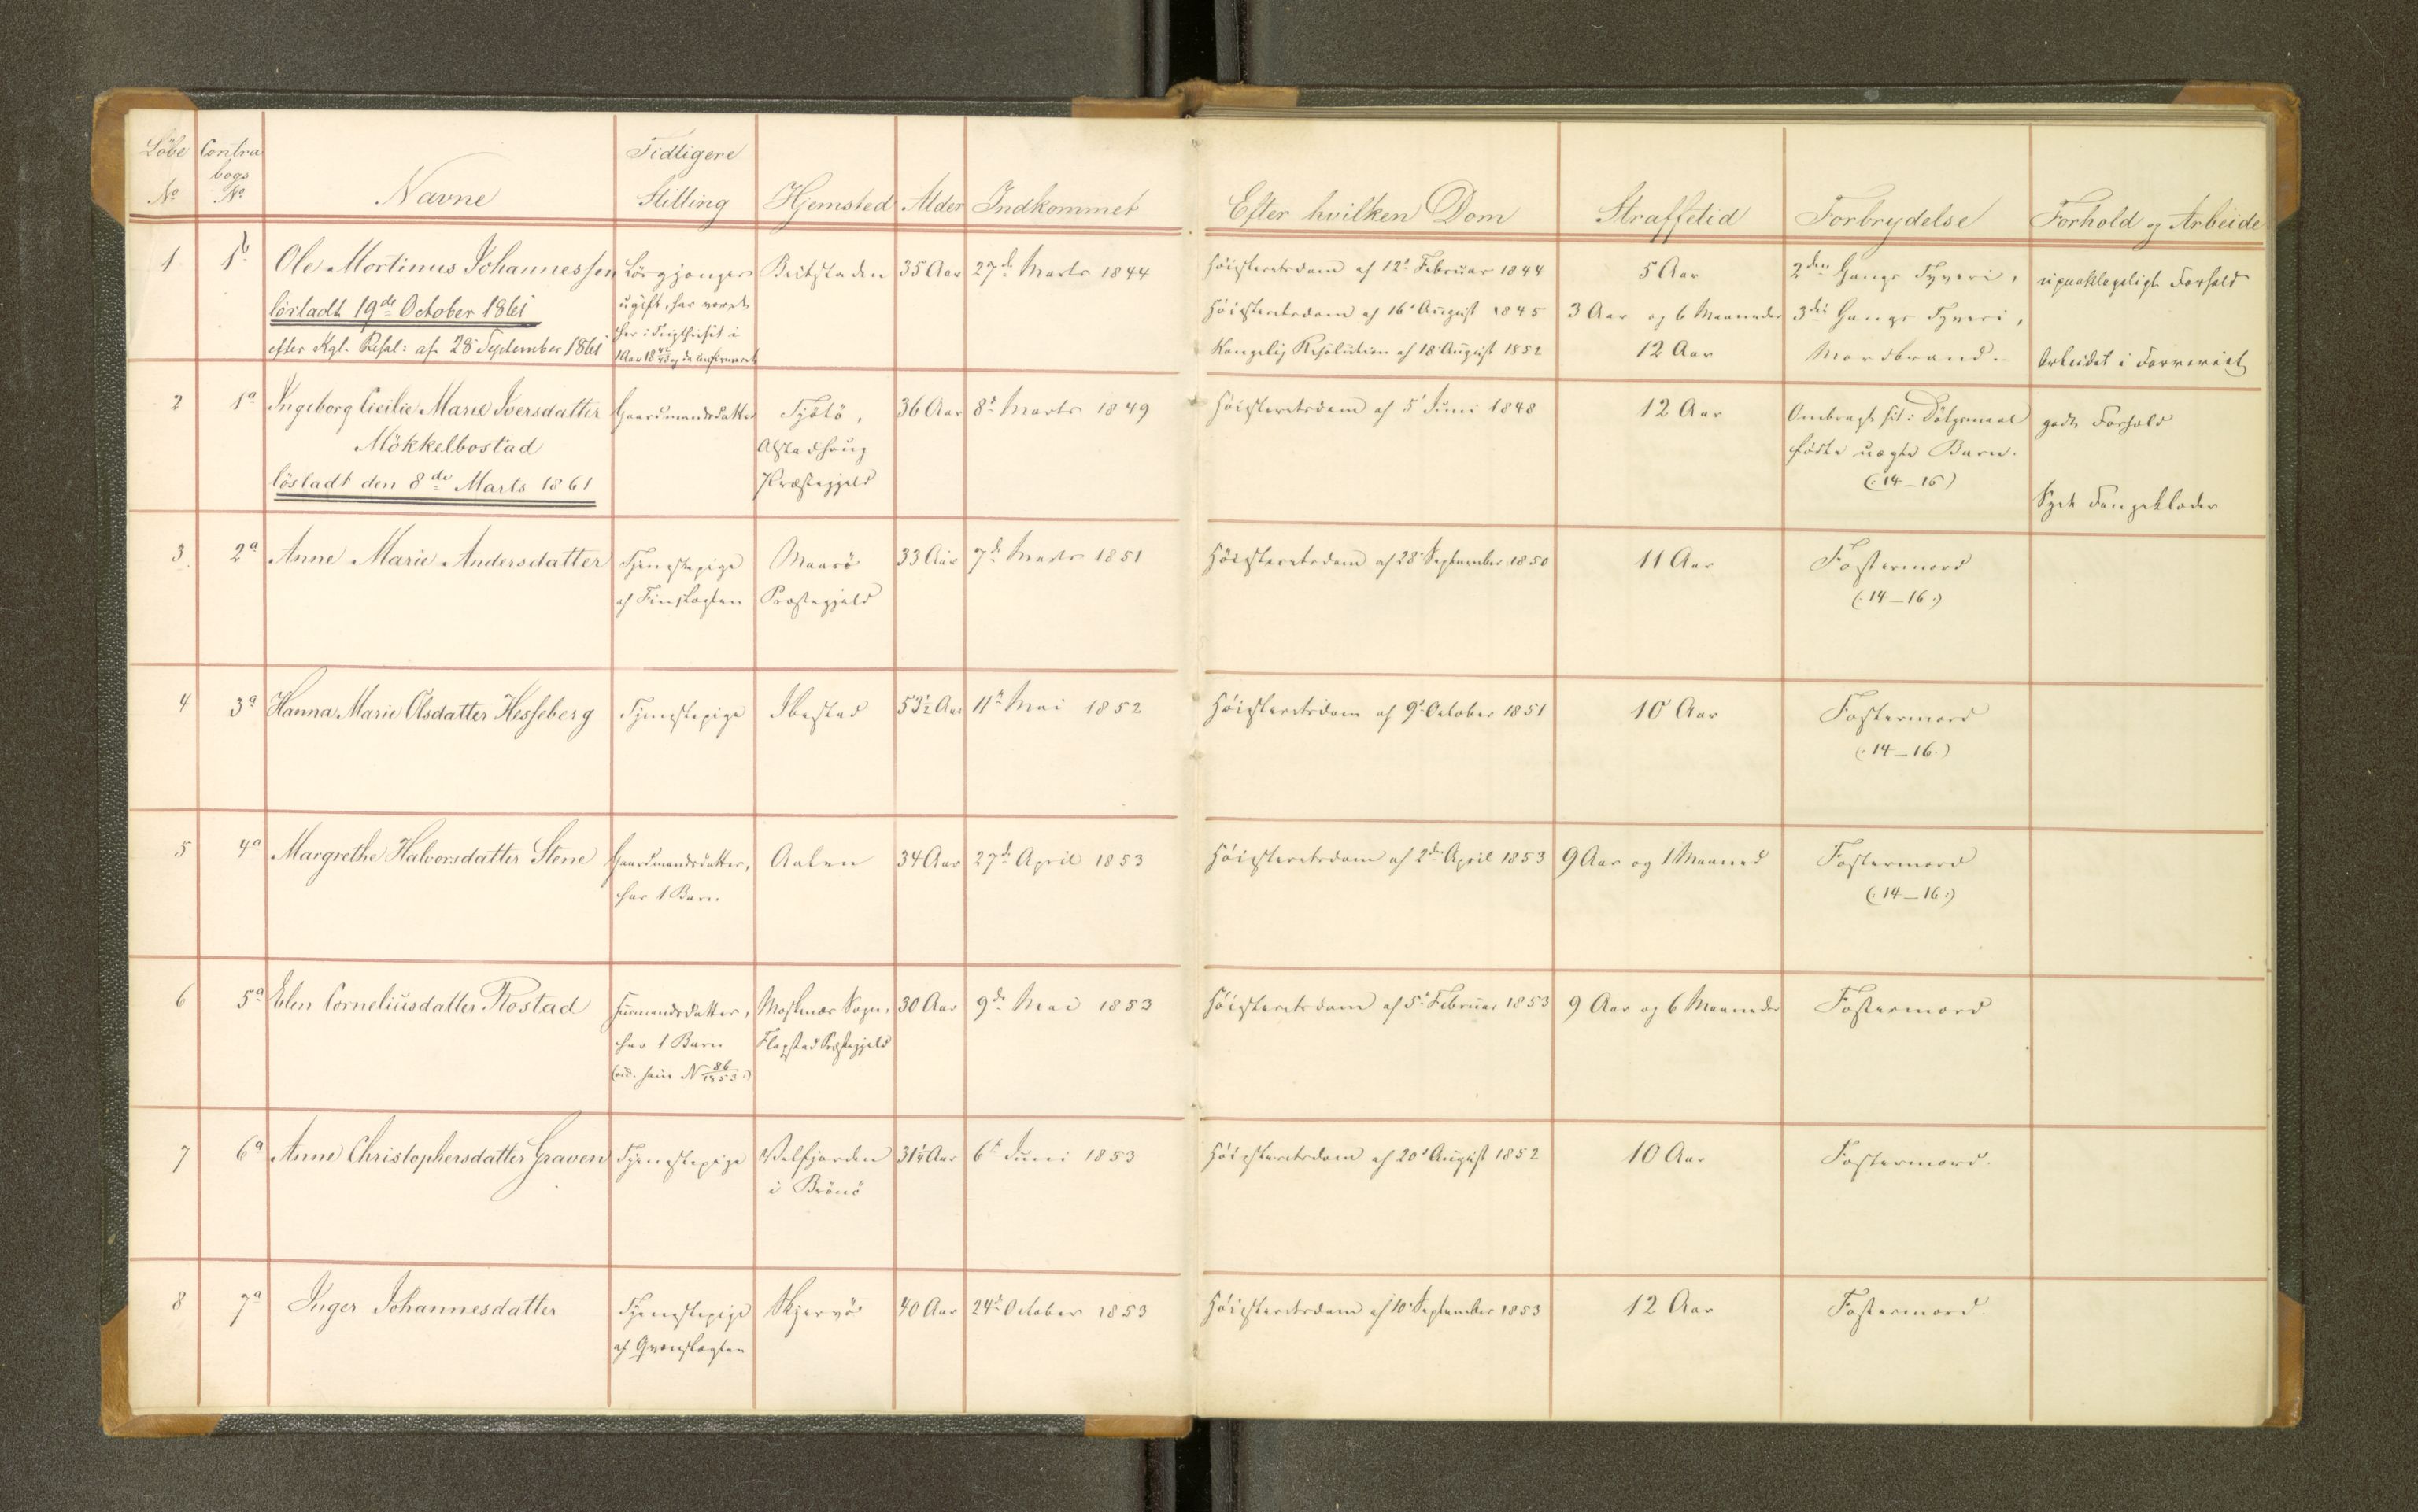 Löbe Contra Tidligere
bogs
No No Navne Stilling Hjemsted Alder Indkommet Efter hvilken Dom Straffetid Forbrydelse Forhold og Arbeide
1 1b Ole Mortinus Johannessen Lösgjænger Beitstaden 35 Aar 27de Marts 1844 Höiesteretsdom af 12te Februar 1844 5 Aar 2den Gangs Tyveri, upaaklageligt Forhold
lösladt 19de October 1861 ugift, har været Höiesteretsdom af 16de August 1845 3 Aar og 6 Maaneder 3die Gangs Tyveri,
efter Kgl. Resol: af 28 September 1861 her i Tugthuset i Kongelig Resolution af 18 August 1852 12 Aar Mordbrand. Arbeidet i Farveriet
1 Aar
2 1a Ingeborg Cicilie Marie Iversdatter Gaardmandsdatter Tjötö, 36 Aar 8de Marts 1849 Höiesteretsdom af 5te Juni 1848 12 Aar Ombragt sit i Dölgsmaal godt Forhold
Mökkelbostad Alstadhoug födte uægte Barn.
lösladt den 8de Marts 1861 Præstegjeld (14-16) Syet Fangeklæder
3 2a Anne Marie Andersdatter Tjenestepige Maasö 33 Aar 7de Marts 1851 Höiesteretsdom af 28 September 1850 11 Aar Fostermord
af Finslægten Præstegjeld (: 14-16 :)
4 3a Hanna Marie Olsdatter Hesseberg Tjenestepige Ibestad 53½ Aar 11te Mai 1852 Höiesteretsdom af 9de October 1851 10 Aar Fostermord
(: 14-16 :)
5 4a Margrethe Halvorsdatter Stene Gaardmandsdatter, Aalen 34 Aar 27de April 1853 Höiesteretsdom af 2den April 1853 9 Aar og 1 Maaned Fostermord
har 1 Barn. (: 14-16 :)
6 5a Elen Corneliusdatter Rostad Huusmandsdatter, Moskenæs Sogn, 30 Aar 9de Mai 1853 Höiesteretsdom af 5te Februar 1853 9 Aar og 6 Maaneder Fostermord
har 1 Barn Flagstad Præstegjeld
N 86/1853 :)
7 6a Anne Christophersdatter Graven Tjenestepige Velfjorden 31¼ Aar 6te Juni 1853 Höiesteretsdom af 20de August 1852 10 Aar Fostermord.
i Brönö
8 7a Inger Johannesdatter Tjenestepige Skjervö 40 Aar 24de October 1853 Höiesteretsdom af 10de September 1853 12 Aar Fostermord.
af Qvænslægten